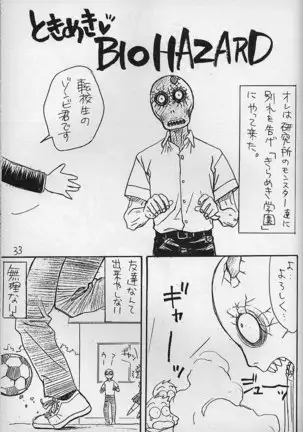 ときめき♥
BIOHAZARD
オレは研究所のモンスター達に
別れを告げ「きらめき学園」
にやって来た。
転校生の
ゾンビ君です
33
よ…
よろしく…
ギャー
友達なんて
出来やしない
無理ない